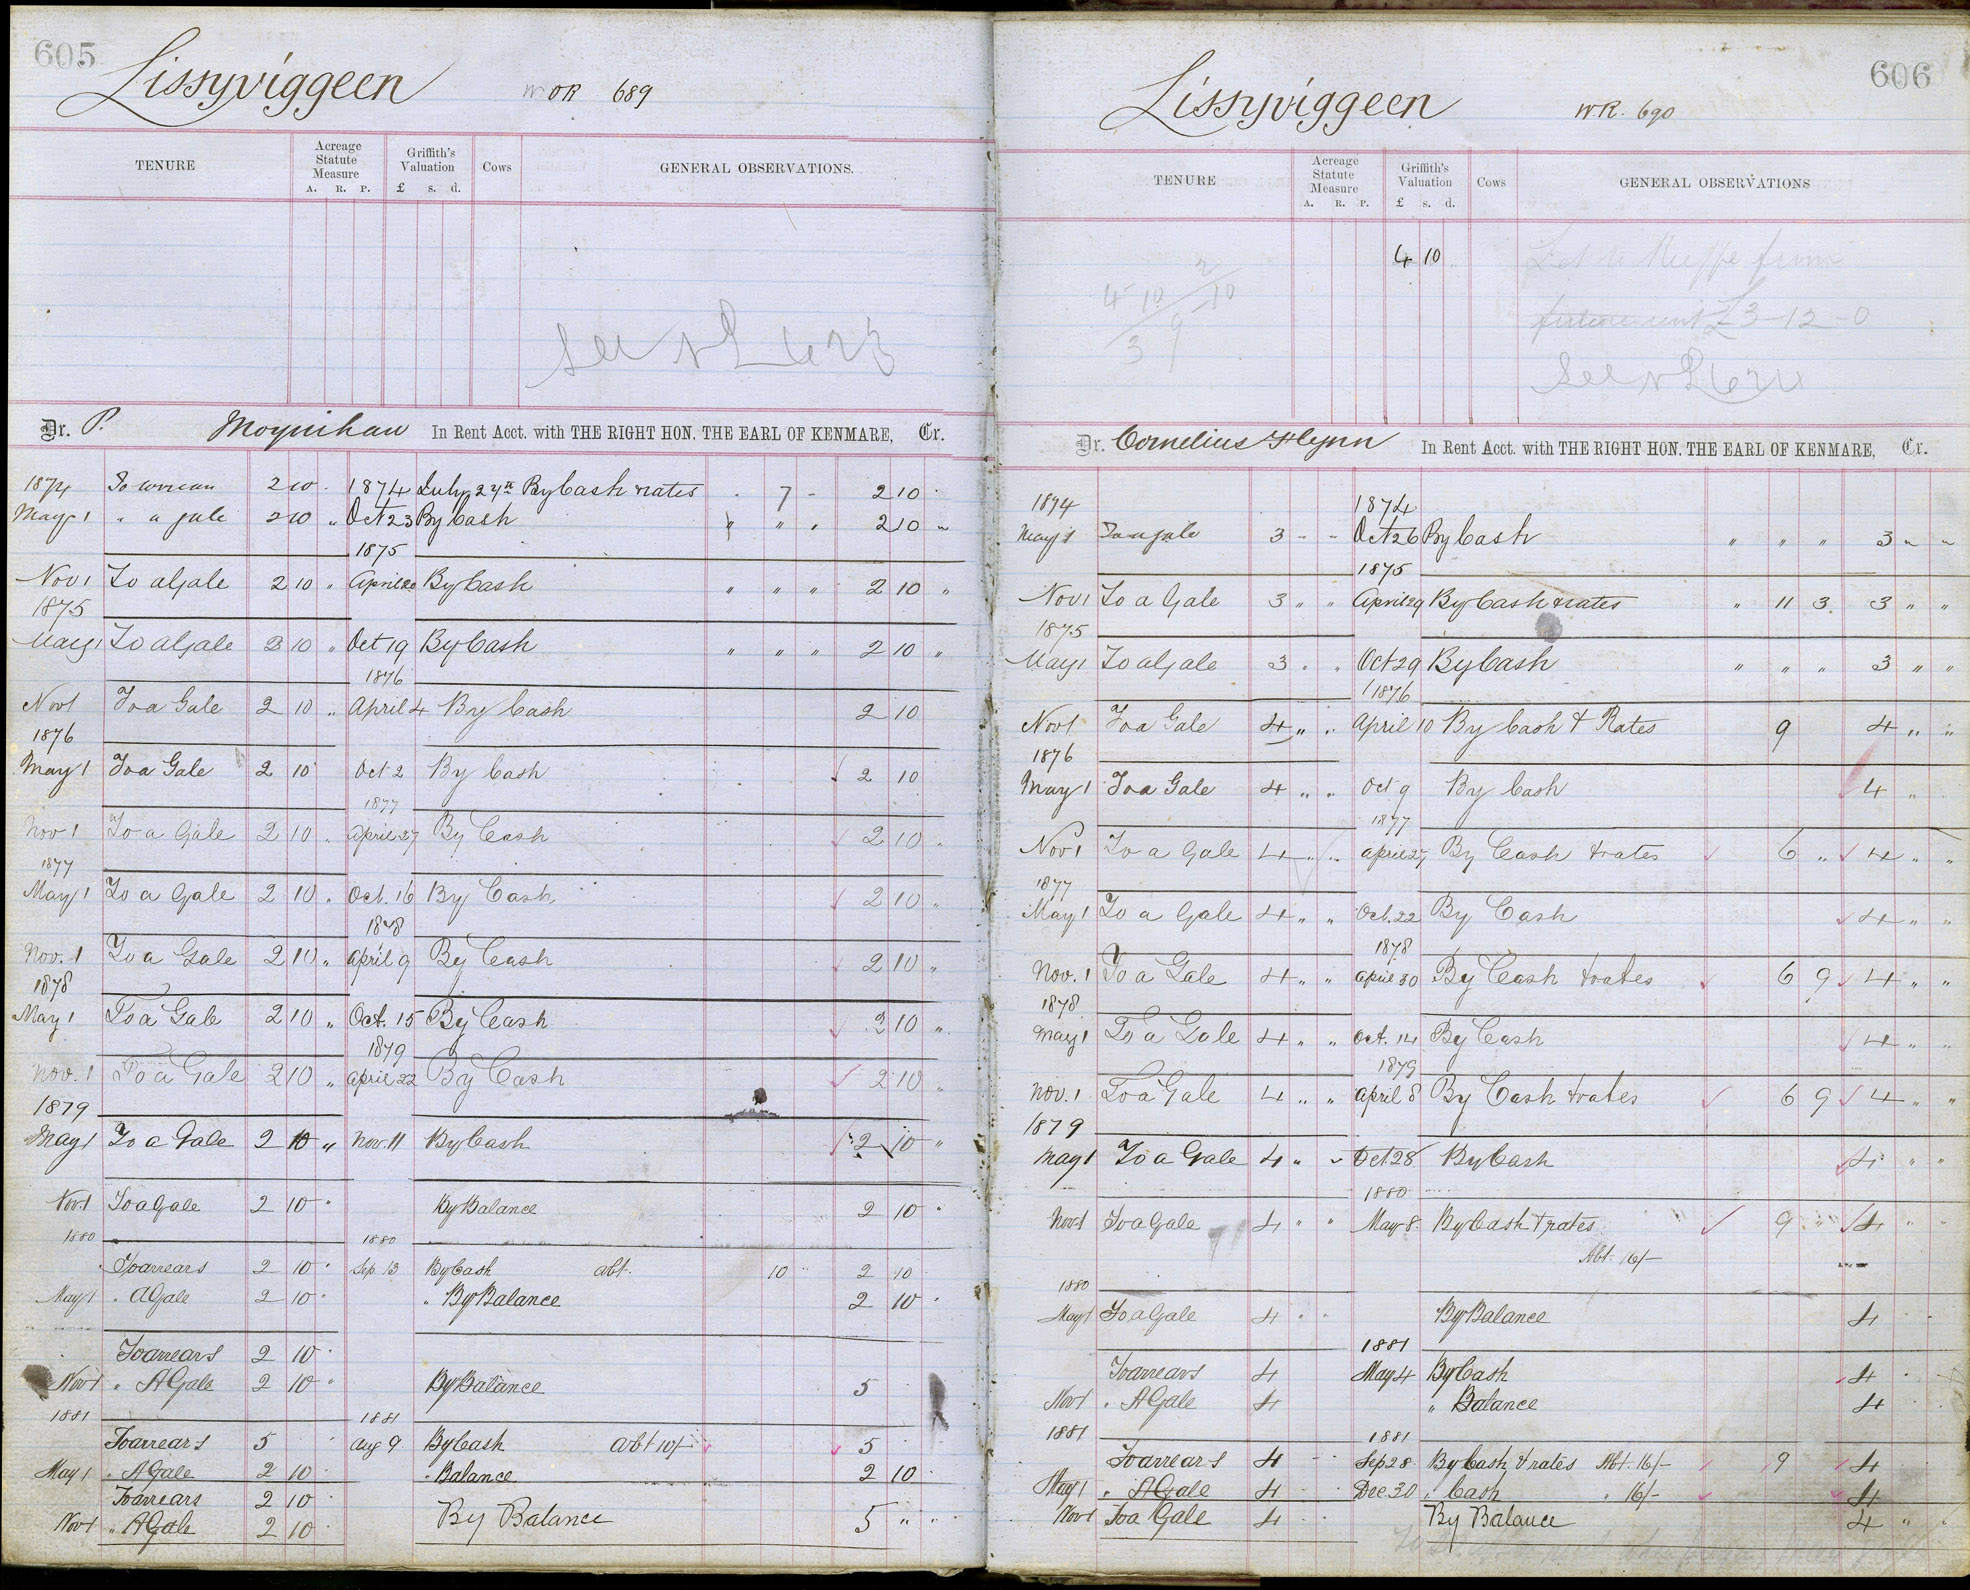 605
Lissyviggeen OR 689
TENURE
Acreage Statute Measure
A. R. P.
Griffith's Valuation
£ s. d.
Cows
GENERAL OBSERVATIONS.
See
Dr. P. Moynihan In Rent Acct. with THE RIGHT HON. THE EARL OF KENMARE, Cr.
1874 To arrears 2 10 1874 July 24th By Cash & rates 7 2 10
May 1 " a gale 2 10 " Oct 23 By Cash " " " 2 10 "
1875
Nov 1 To a Gale 2 10 " April 20 By Cash " " " 2 10 "
1875
May 1 To a Gale 2 10 " Oct 19 By Cash " " " 2 10 "
1876
Nov 1 To a Gale 2 10 " April 4 By Cash 2 10
1876
May 1 To a Gale 2 10 Oct 2 By Cash 2 10
1877
Nov 1 To a Gale 2 10 " April 27 By Cash 2 10 "
1877
May 1 To a Gale 2 10 " Oct. 16 By Cash 2 10 "
1878
Nov. 1 To a Gale 2 10 " April 9 By Cash 2 10 "
1878
May 1 To a Gale 2 10 " Oct. 15 By Cash 2 10 "
1879
Nov. 1 To a Gale 2 10 " April 22 By Cash 2 10 "
1879
May 1 To a Gale 2 10 " Nov. 11 By Cash 2 10 "
Nov 1 To a Gale 2 10 " By Balance 2 10 "
1880 1880
To arrears 2 10 " Sep 13 By Cash abt. 10 2 10
May 1 " A Gale 2 10 " " By Balance 2 10 "
To arrears 2 10 "
Nov 1 " A Gale 2 10 " By Balance 5
1881 1881
To arrears 5 Aug 9 By Cash Abt 10/- 5
May 1 " A Gale 2 10 " Balance 2 10
To arrears 2 10
Nov 1 " A Gale 2 10 By Balance 5 " "
606
Lissyviggeen W.R. 690
TENURE
Acreage Statute Measure
A. R. P.
Griffith's Valuation
£ s. d.
Cows
GENERAL OBSERVATIONS
4 10
4 10
3 9
£3-12-0
See
Dr. Cornelius Flynn In Rent Acct. with THE RIGHT HON. THE EARL OF KENMARE, Cr.
1874 1874
May 1 To a gale 3 " " Oct 26 By Cash " " " 3 " "
1875
Nov 1 To a Gale 3 " " April 29 By Cash & rates " 11 3 3 " "
1875
May 1 To a Gale 3 " " Oct 29 By Cash " " " 3 " "
1876
Nov 1 To a Gale 4 " " April 10 By Cash & Rates 9 4 " "
1876
May 1 To a Gale 4 " " Oct 9 By Cash 4 "
1877
Nov 1 To a Gale 4 " " April 27 By Cash & rates 6 " 4 " "
1877
May 1 To a Gale 4 " " Oct. 22 By Cash 4 " "
1878
Nov. 1 To a Gale 4 " " April 30 By Cash & rates 6 9 4 " "
1878
May 1 To a Gale 4 " " Oct. 14 By Cash 4 " "
1879
Nov. 1 To a Gale 4 " " April 8 By Cash & rates 6 9 4 " "
1879
May 1 To a Gale 4 " " Oct 28 By Cash 4 " "
1880
Nov 1 To a Gale 4 " " May 8 By Cash & rates 9 " 4 "
Abt. 16/-
1880
May 1 To a Gale 4 " " By Balance 4
1881
To arrears 4 May 4 By Cash 4
Nov 1 " A Gale 4 " Balance 4
1881 1881
To arrears 4 Sep 28 By Cash & rates Abt. 16/- 9 4
May 1 " A Gale 4 Dec 30 " Cash " 16/- 4
Nov 1 To a Gale 4 By Balance 4 "